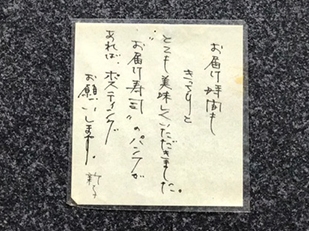 お届け時間も
きっちりと
とても美味しくいただきました。
"お届け寿司"のパンフが
あれば、ポスティング
お願いします。